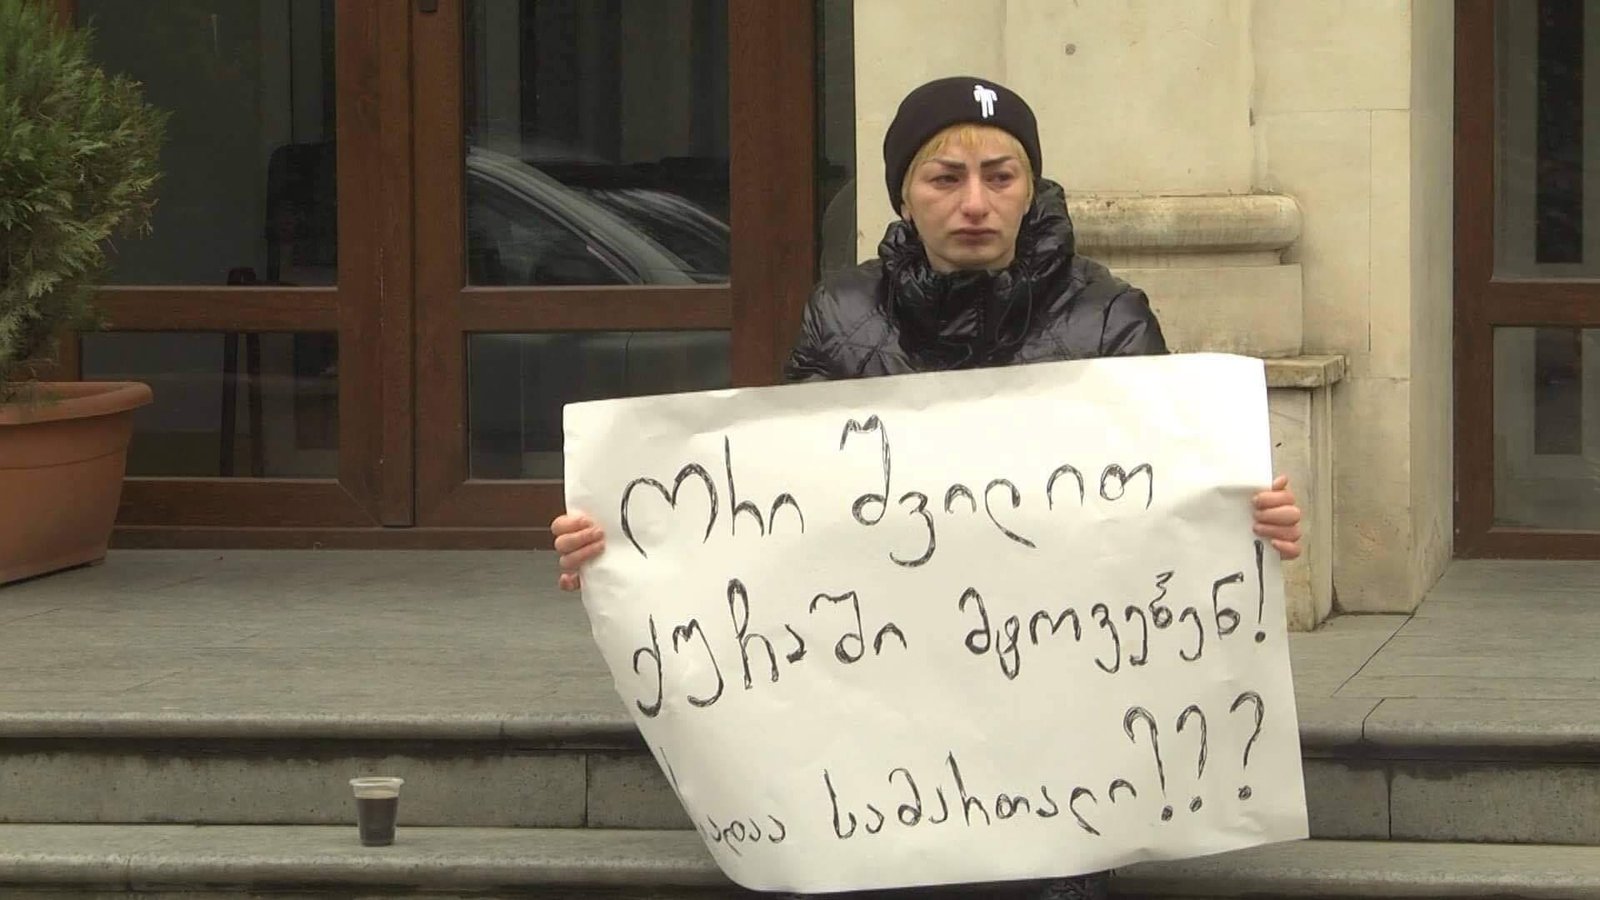 ორი შვილით
ქუჩაში მტოვებენ!
სადაა სამართალი???